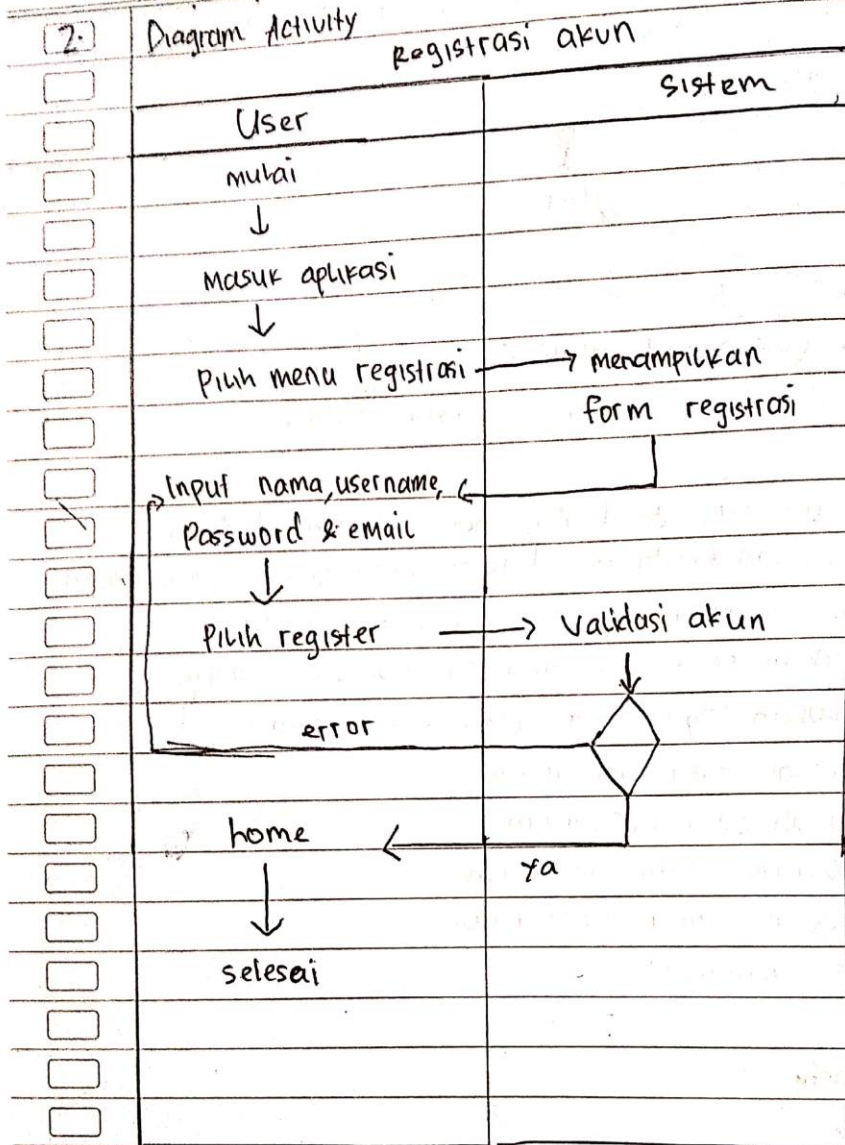 2.
Diagram Activity
Registrasi akun
User
Sistem
mulai
masuk aplikasi
Pilih menu registrasi
menampilkan
form registrasi
Input nama, username,
Password & email
Pilih register
Validasi akun
error
home
ya
selesai